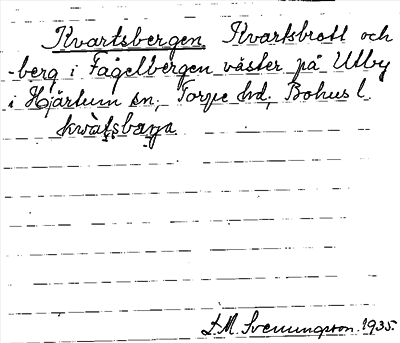 Kvartsbergen Kvartsbrott och
-berg i Fågelbergen väster på Utby
i Hjärtum sn, Torpe hd, Bohus l.
kvàtsbærja
D.M. Svenningsson. 1935.